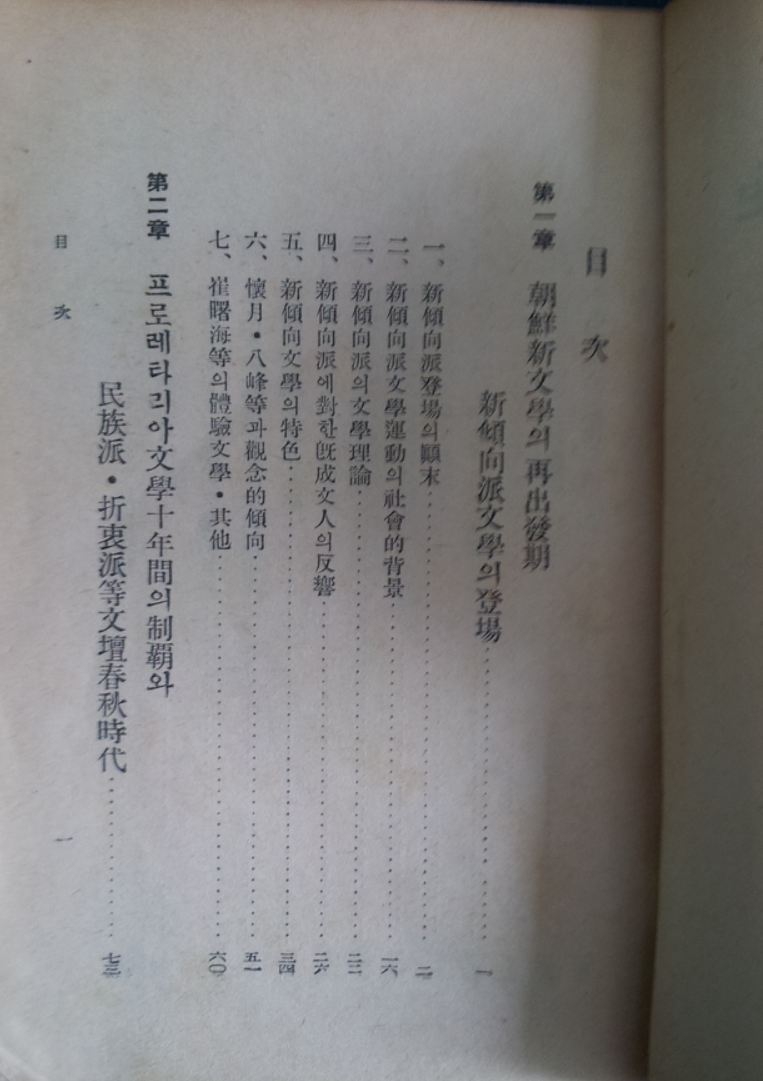 目次
第一章 朝鮮新文學의再出發期
新傾向派文學의登場……一
一、新傾向派登場의顚末……二
二、新傾向派文學運動의社會的背景……一六
三、新傾向派의文學理論……二二
四、新傾向派에對한旣成文人의反響……二六
五、新傾向文學의特色……三四
六、懷月・八峰等과觀念的傾向……五一
七、崔曙海等의體驗文學・其他……六〇
第二章 프로레타리아文學十年間의制覇와
民族派・折衷派等文壇春秋時代……七三
目次 一